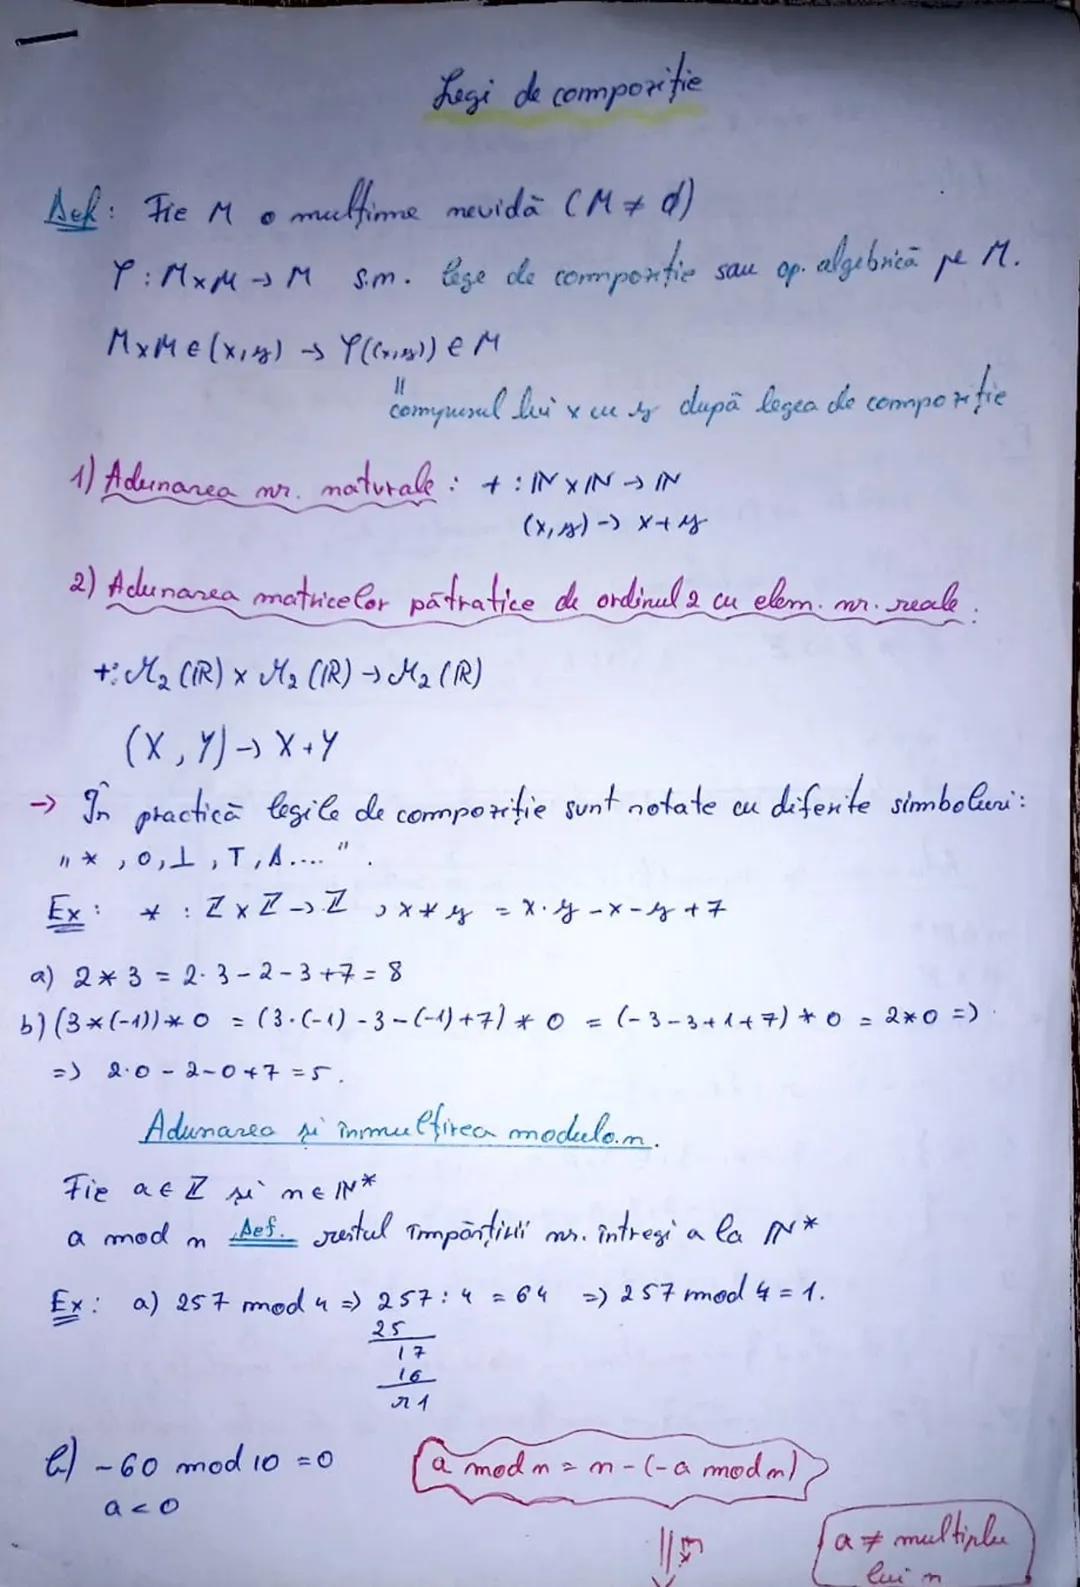 Legi de compoziție
Def: Fie M o mulțime nevidă (M ≠ ∅)
φ : M×M → M s.m. lege de compoziție sau op. algebrică pe M.
M×M ∈ (x,y) → φ((x,y)) ∈ M
"
compusul lui x cu y după legea de compoziție
1) Adunarea nr. naturale : + : ℕ × ℕ → ℕ
(x,y) → x+y
2) Adunarea matricelor pătratice de ordinul 2 cu elem. nr. reale.
+: M₂(ℝ) × M₂(ℝ) → M₂(ℝ)
(X, Y) → X+Y
→ În practică legile de compoziție sunt notate cu diferite simboluri:
„*, o, ⊥, T, Δ...."
Ex: * : ℤ × ℤ → ℤ, x*y = x·y - x - y + 7
a) 2*3 = 2·3 - 2 - 3 + 7 = 8
b) (3*(-1))*0 = (3·(-1) - 3 - (-1) + 7) * 0 = (-3 - 3 + 1 + 7) * 0 = 2*0 =>
=> 2·0 - 2 - 0 + 7 = 5.
Adunarea și înmulțirea modulo n.
Fie a ∈ ℤ și n ∈ ℕ*
a mod n Def. restul împărțirii nr. întregi a la ℕ*
Ex: a) 257 mod 4 => 257 : 4 = 64 => 257 mod 4 = 1.
25
17
16
r1
b) -60 mod 10 = 0
a mod n = n - (-a mod n)
a < 0
Ex
a ≠ multiplu
lui n